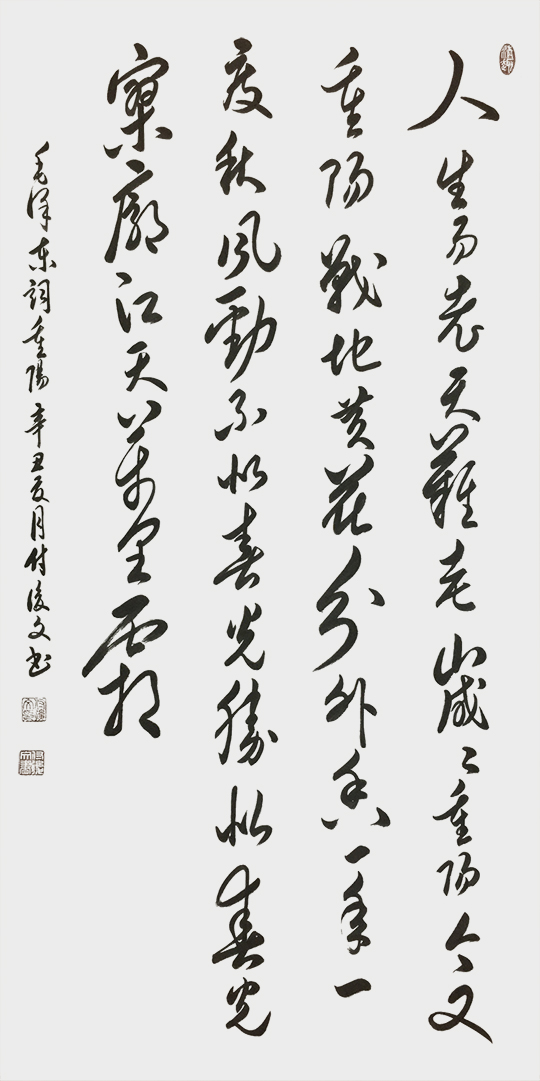 人生易老天難老歲々重陽今又
重陽戰地黃花分外香一年一
度秋風勁不似春光勝似春光
寥廓江天萬里霜
毛澤東詞重陽辛丑夏月付俊文書